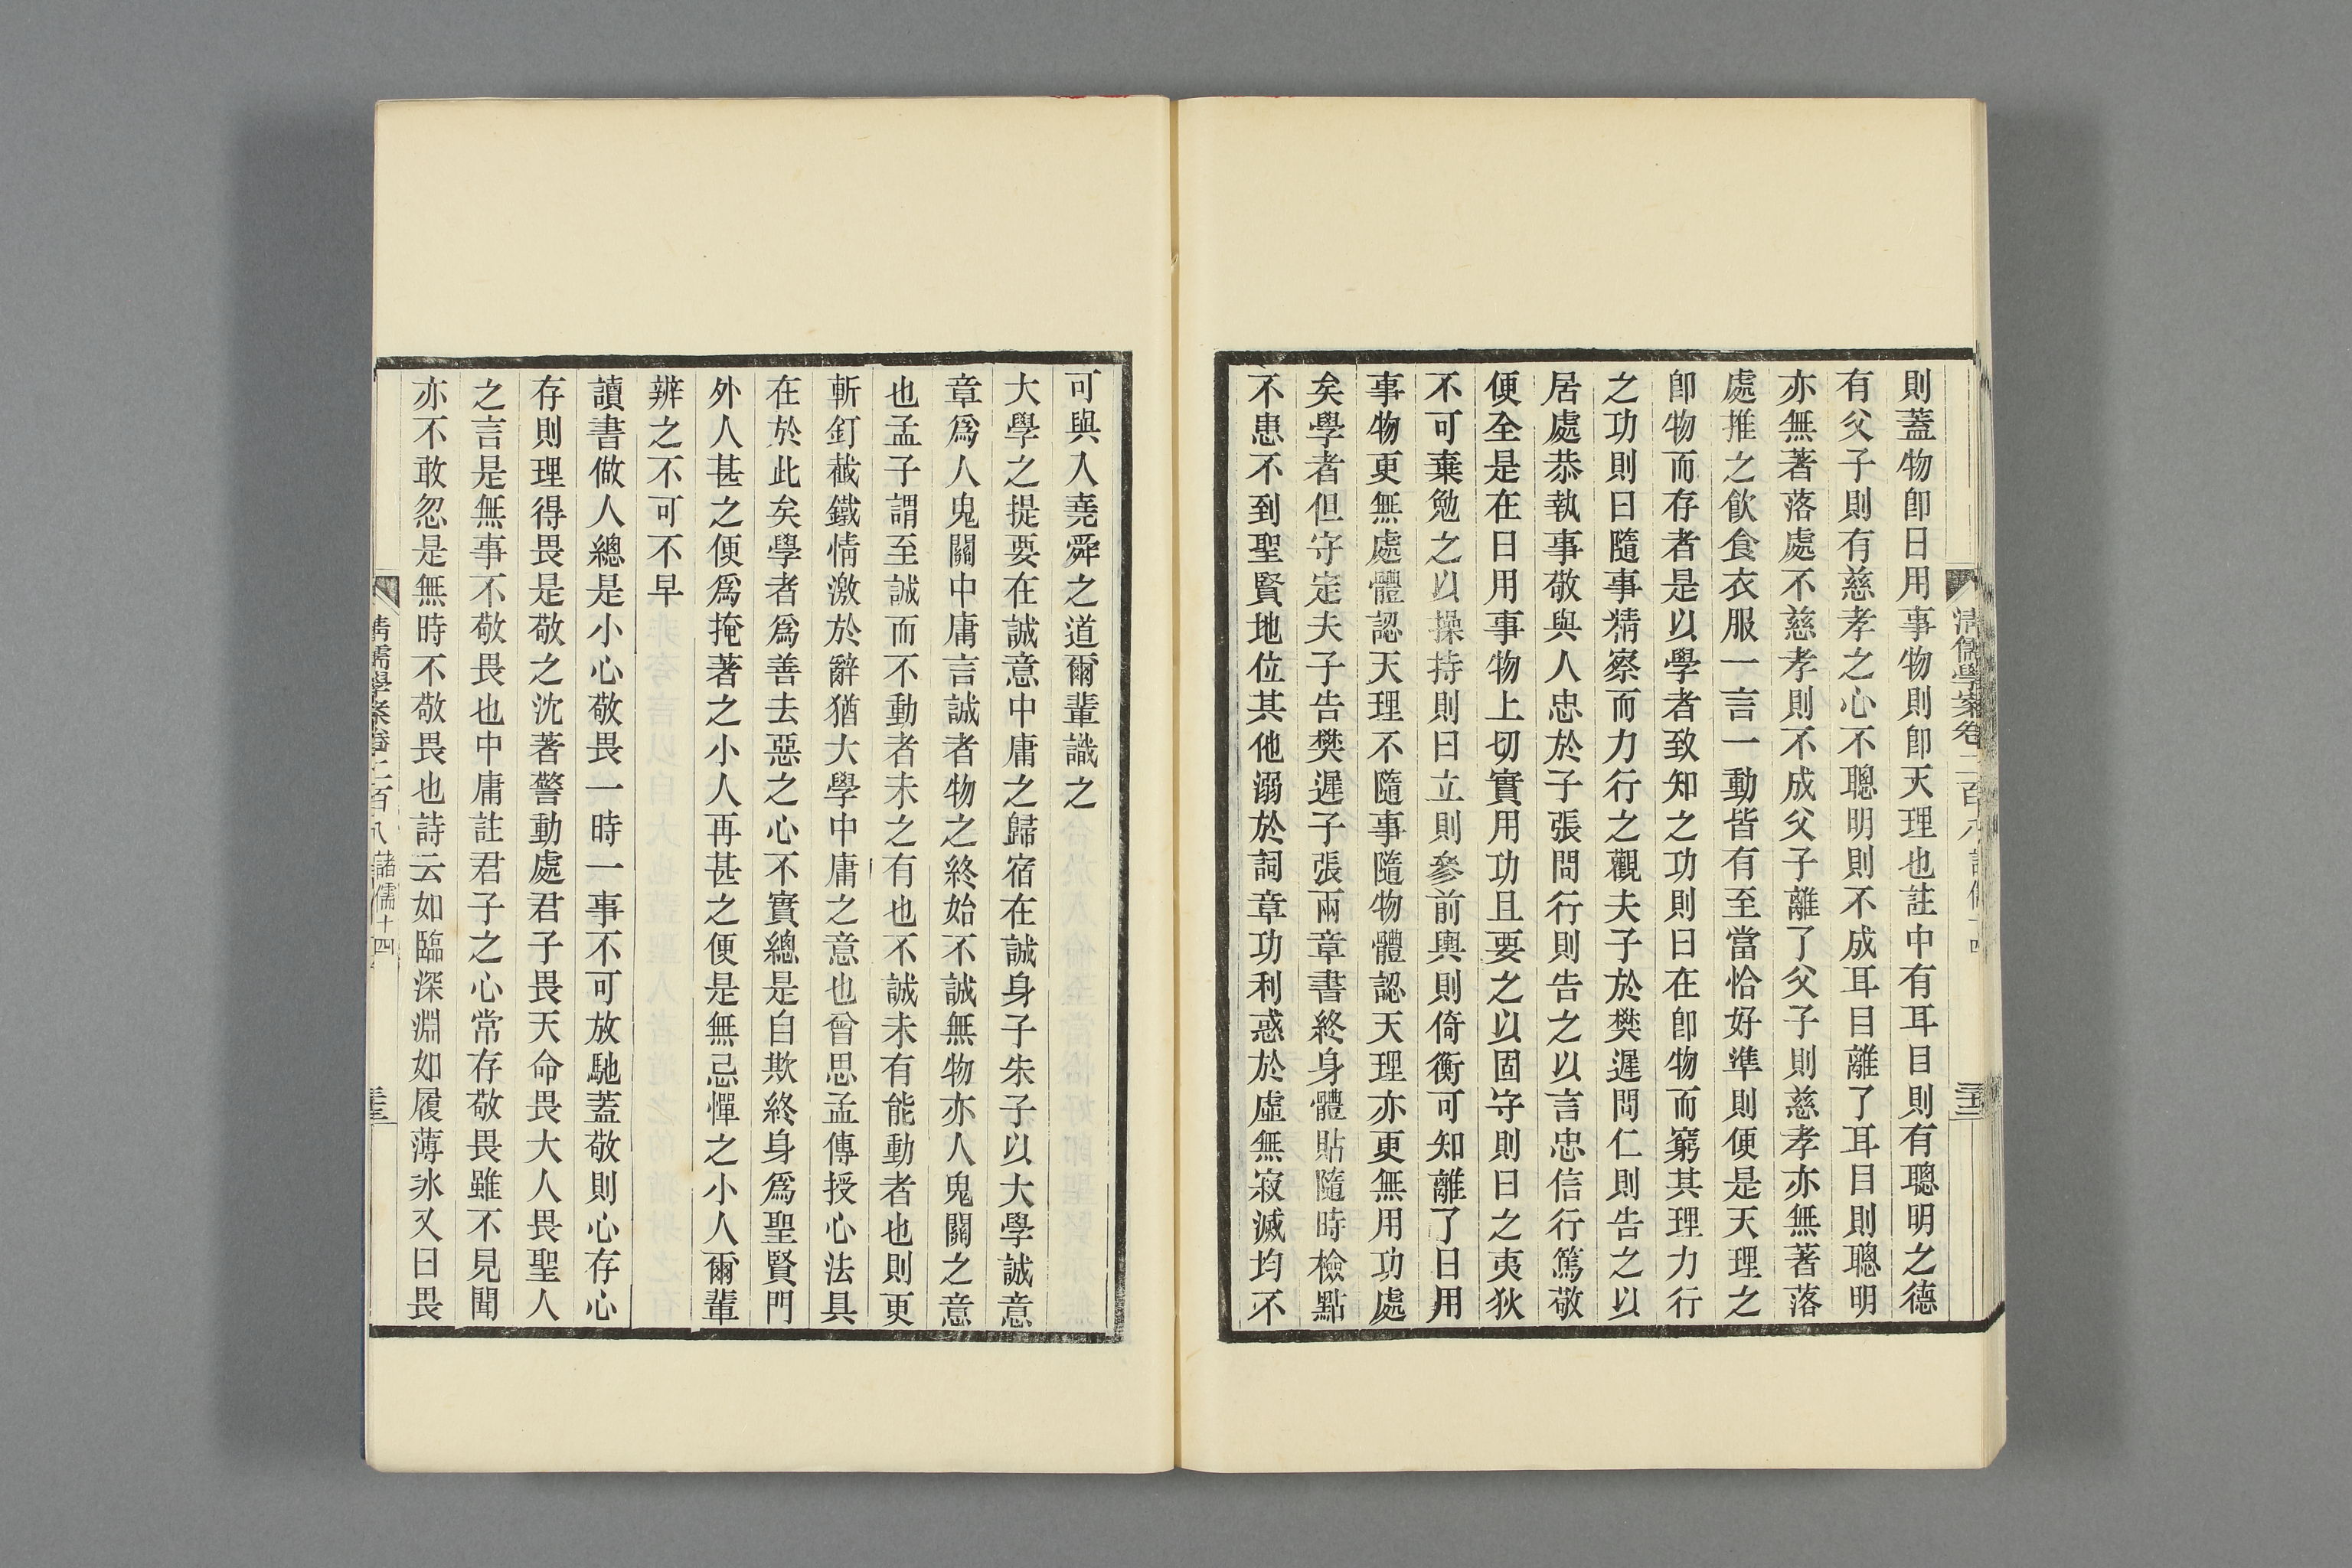 清儒學案卷二百八 諸儒十四 三十二
則蓋物卽日用事物則卽天理也註中有耳目則有聰明之德
有父子則有慈孝之心不聰明則不成耳目離了耳目則聰明
亦無著落處不慈孝則不成父子離了父子則慈孝亦無著落
處推之飮食衣服一言一動皆有至當恰好準則便是天理之
卽物而存者是以學者致知之功則曰在卽物而窮其理力行
之功則曰隨事精察而力行之觀夫子於樊遲問仁則告之以
居處恭執事敬與人忠於子張問行則告之以言忠信行篤敬
便全是在日用事物上切實用功且要之以固守則曰之夷狄
不可棄勉之以操持則曰立則參前輿則倚衡可知離了日用
事物更無處體認天理不隨事隨物體認天理亦更無用功處
矣學者但守定夫子告樊遲子張兩章書終身體貼隨時檢點
不患不到聖賢地位其他溺於詞章功利惑於虛無寂滅均不
可與入堯舜之道爾輩識之
大學之提要在誠意中庸之歸宿在誠身子朱子以大學誠意
章爲人鬼關中庸言誠者物之終始不誠無物亦人鬼關之意
也孟子謂至誠而不動者未之有也不誠未有能動者也則更
斬釘截鐵情激於辭猶大學中庸之意也曾思孟傳授心法具
在於此矣學者爲善去惡之心不實總是自欺終身爲聖賢門
外人甚之便爲掩著之小人再甚之便是無忌憚之小人爾輩
辨之不可不早
讀書做人總是小心敬畏一時一事不可放馳蓋敬則心存心
存則理得畏是敬之沈著警動處君子畏天命畏大人畏聖人
之言是無事不敬畏也中庸註君子之心常存敬畏雖不見聞
亦不敢忽是無時不敬畏也詩云如臨深淵如履薄冰又曰畏
清儒學案卷二百八 諸儒十四 三十三